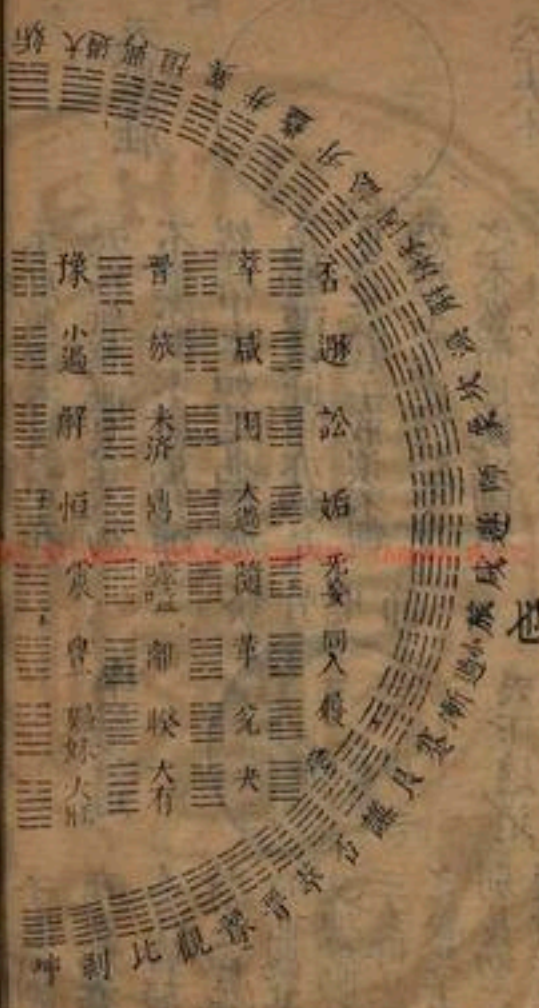 也
姤 大過 鼎 恒 巽 井 蠱 升 訟 困 未濟 解 渙 坎 蒙 師 遯 咸 旅 小過 漸 蹇 艮 謙 否 萃 晉 豫 觀 比 剝 坤
否 遯 訟 姤 无妄 同人 履 乾
萃 咸 困 大過 隨 革 兌 夬
晉 旅 未濟 鼎 噬嗑 離 睽 大有
豫 小過 解 恒 震 豊 歸妹 大壯